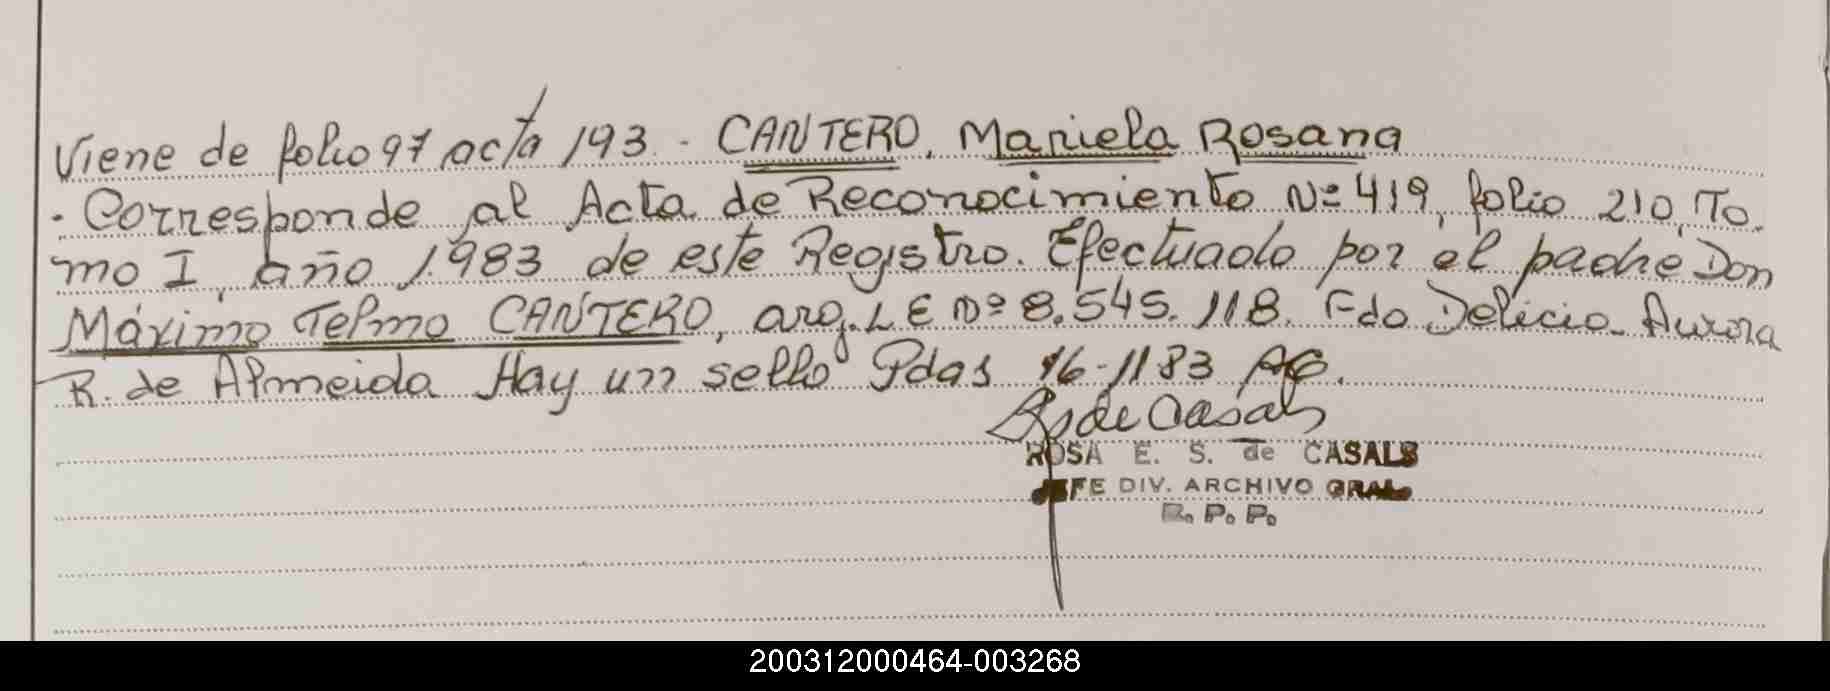 Viene de folio 97 acta 193 - CANTERO, Mariela Rosana
. Corresponde al Acta de Reconocimiento Nº 419, folio 210, To
mo I, año 1983 de este Registro. Efectuado por el padre Don
Máximo Telmo CANTERO, arg. L E Nº 8.545.118. Fdo Delicia Aurora
R. de Almeida Hay un sello Pdas 16-11 83
R de Casals
ROSA E. S. de CASALS
JEFE DIV. ARCHIVO GRAL.
R. P. P.
200312000464-003268